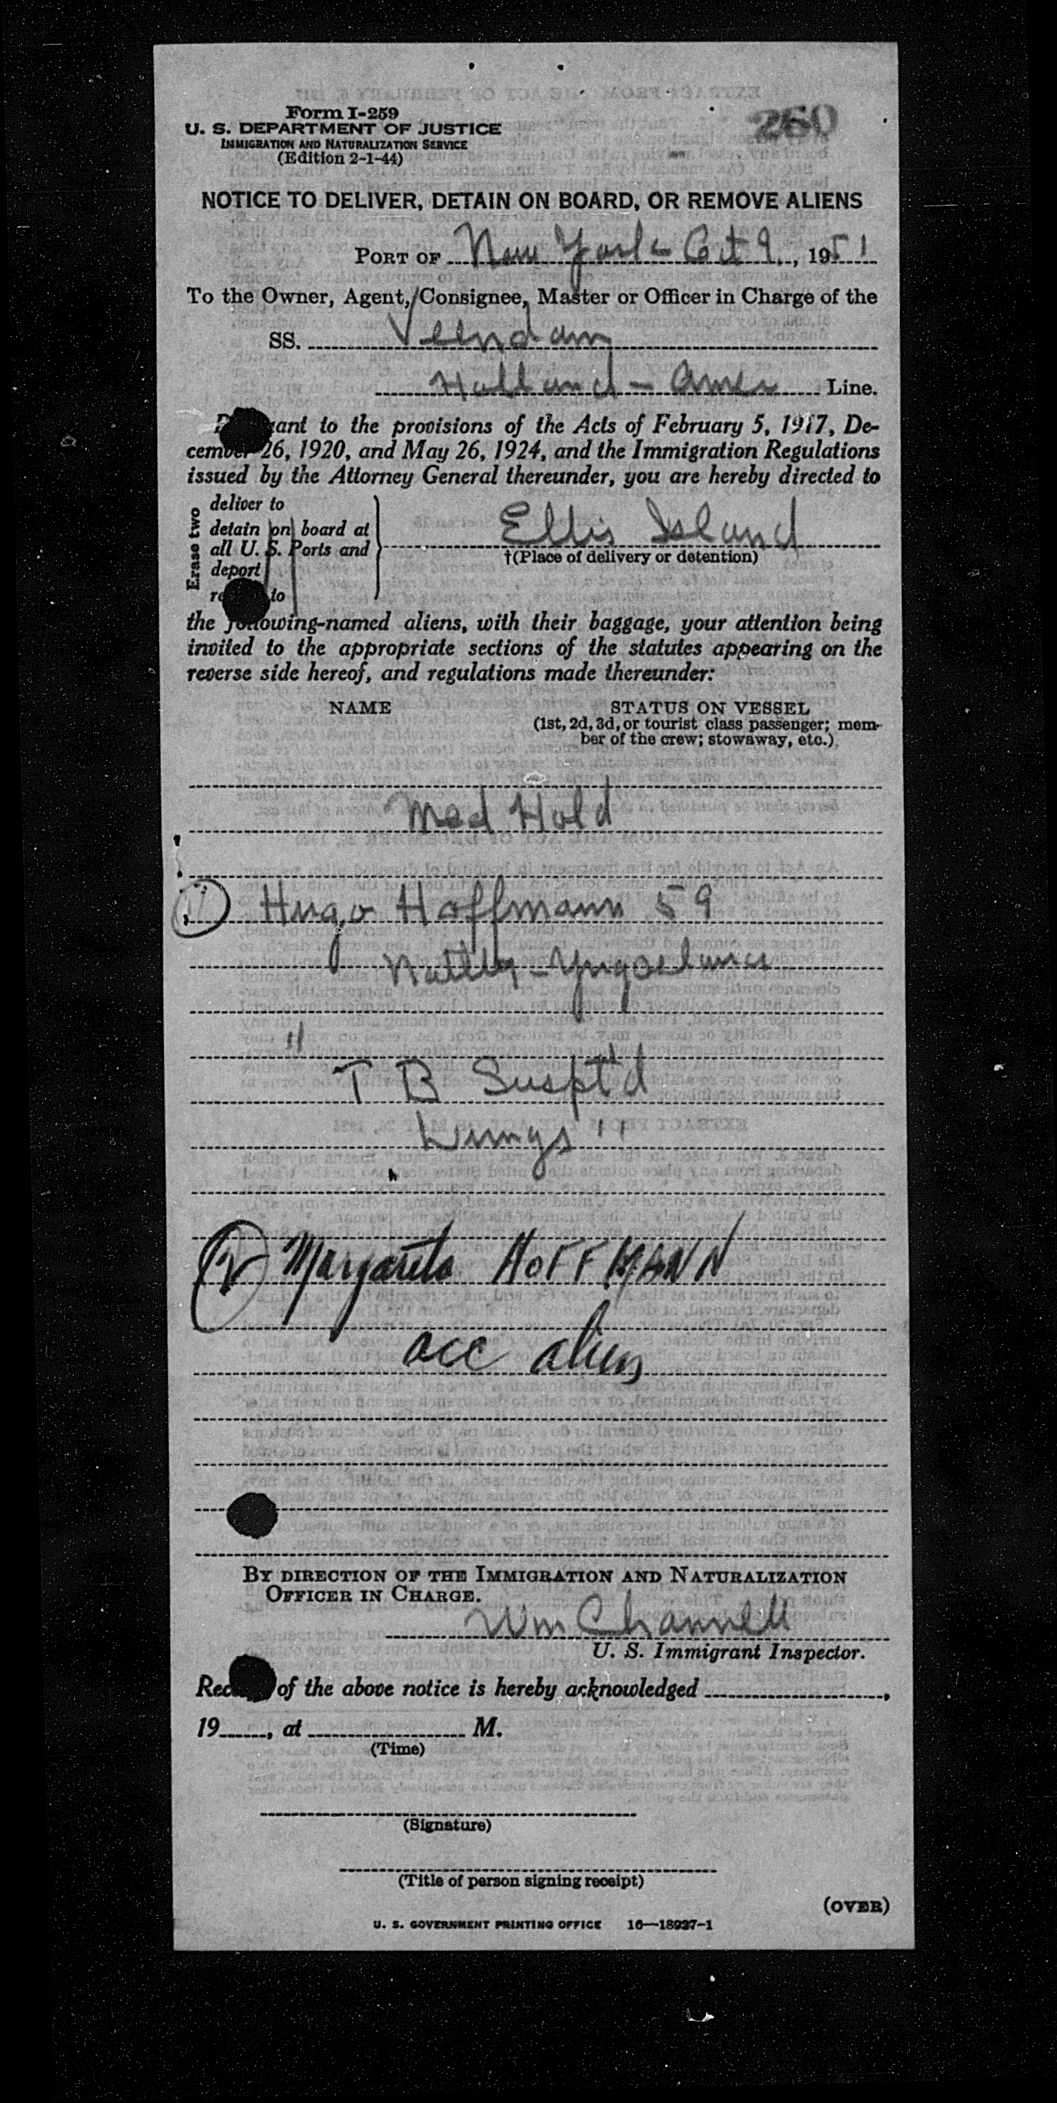 Form I-259
U. S. DEPARTMENT OF JUSTICE
IMMIGRATION AND NATURALIZATION SERVICE
(Edition 2-1-44)
260
NOTICE TO DELIVER, DETAIN ON BOARD, OR REMOVE ALIENS
PORT OF New York Oct 9, 1951
To the Owner, Agent, Consignee, Master or Officer in Charge of the
SS. Veendam
Holland - Amer Line.
to the provisions of the Acts of February 5, 1917, De-
cember 26, 1920, and May 26, 1924, and the Immigration Regulations
issued by the Attorney General thereunder, you are hereby directed to
Erase two
deliver to
detain on board at
all U. S. Ports and
deport
to
Ellis Island
†(Place of delivery or detention)
the following-named aliens, with their baggage, your attention being
invited to the appropriate sections of the statutes appearing on the
reverse side hereof, and regulations made thereunder:
NAME STATUS ON VESSEL
(1st, 2d, 3d, or tourist class passenger; mem-
ber of the crew; stowaway, etc.)
Med Hold
1 Hugo Hoffmann 59
Natlty - Yugoslavia
" T B Suspt'd
Lungs "
2 Margarita HOFFMANN
acc alien
BY DIRECTION OF THE IMMIGRATION AND NATURALIZATION
OFFICER IN CHARGE.
Wm Channell
U. S. Immigrant Inspector.
of the above notice is hereby acknowledged ,
19 , at M.
(Time)
(Signature)
(Title of person signing receipt)
(OVER)
U. S. GOVERNMENT PRINTING OFFICE 16—18937-1